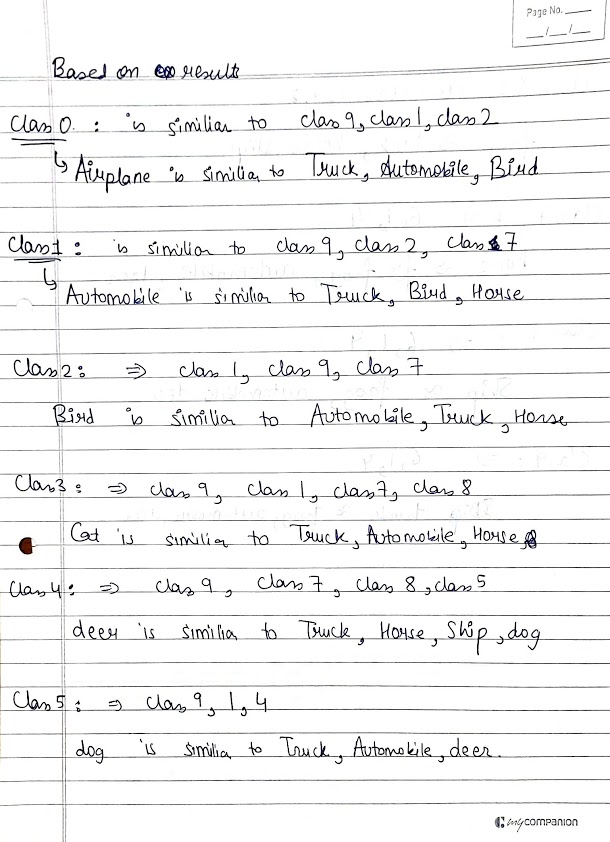 Page No.
Based on results
Class 0. : is similiar to class 9, class 1, class 2
↳ Airplane is similiar to Truck, Automobile, Bird
Class 1 : is similiar to class 9, class 2, class 7
↳ Automobile is similiar to Truck, Bird, Horse
Class 2 : ⇒ class 1, class 9, class 7
Bird is similiar to Automobile, Truck, Horse
Class 3 : ⇒ class 9, class 1, class 7, class 8
Cat is similiar to Truck, Automobile, Horse,
Class 4 : ⇒ class 9, class 7, class 8, class 5
deer is similiar to Truck, Horse, Ship, dog
Class 5 : ⇒ class 9, 1, 4
dog is similia to Truck, Automobile, deer.
mycompanion